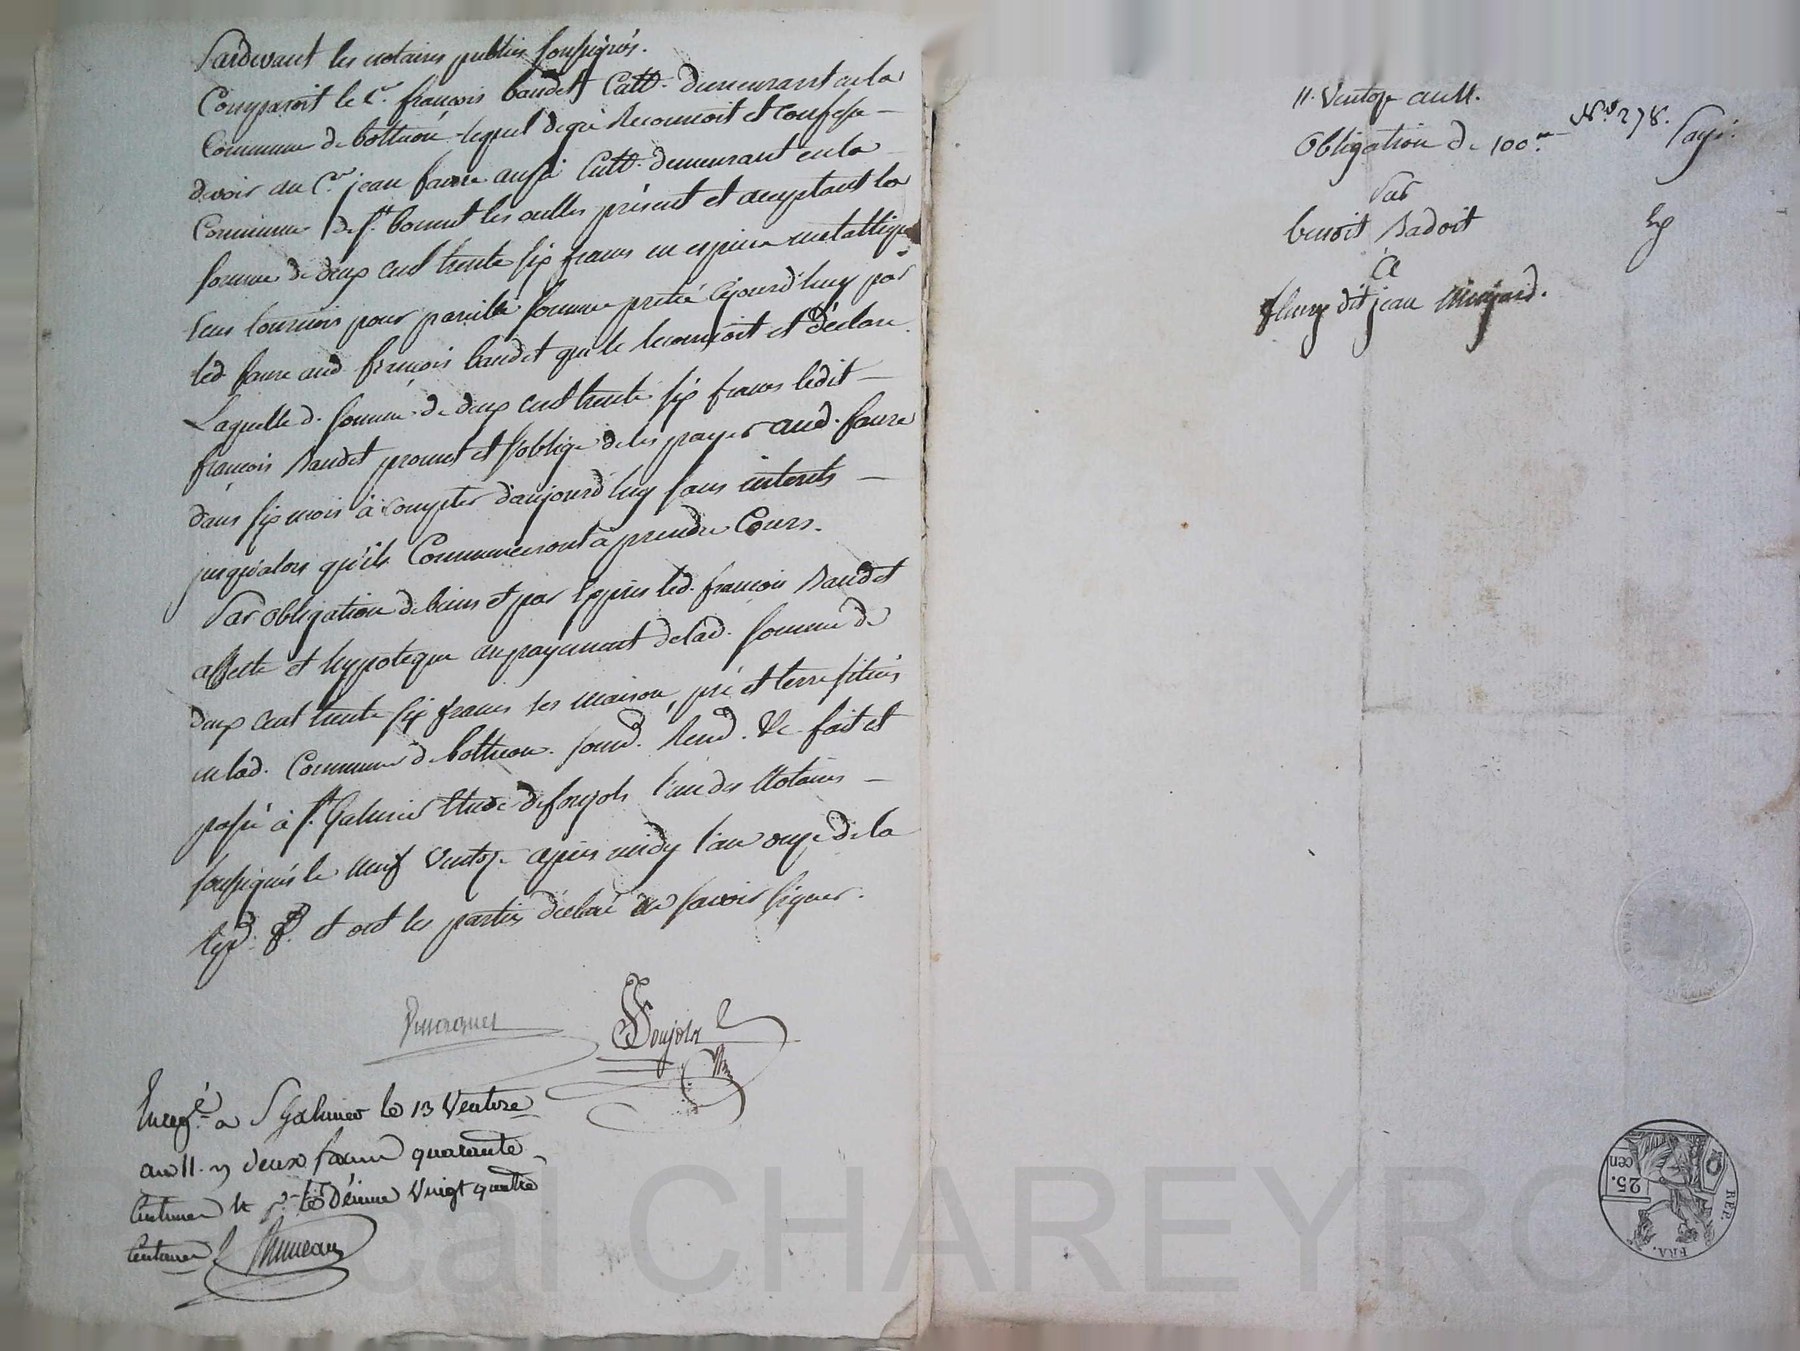 Pardevant les notaires publics soussignés.
Comparoit le C.en françois baudet Cult.r demeurant en la
Commune de bothéon lequel de gré Reconnoit et confesse
devoir au C.en jean faure aussi Cult.r demeurant en la
Commune de s.t bonnet les oulles présent et acceptant la
somme de deux cent trente six francs en espèces metallique
sous tournois pour pareille somme pretée cejourd'huy par
led. faure aud. françois baudet qui le reconnoit et déclare.
Laquelle d. somme de deux cent trente six francs ledit
françois Baudet promet et s'oblige de les payer aud. faure
dans six mois à compter d'aujourd'huy sans interets
jusqu'alors qu'ils Commenceront à prendre Cours.
Par obligation de biens et par Exprès led. françois Baudet
affecte et hypoteque au payement de lad. somme de
deux cent trente six francs ses maison, pré et terre situés
en lad. Commune de bothéon. soumd. Rend. &c fait et
passé à s.t Galmier Etude de soujols l'un des Notaires
soussignés le neuf Ventose après midy l'an onze de la
Rép. f. et ont les parties déclaré ne savoir signer.
Soujols
Enreg.é a S Galmier le 13 Ventose
an 11. deux francs quarante
Centimes le décime Vingt quatre
Centimes
11. Ventose an 11.
N.o 278.
Obligation de 100.
Payé.
Par
benoit Badoit
A
fleury dit jean
25.
cen
REP.
FRA.
cal CHAREYRON